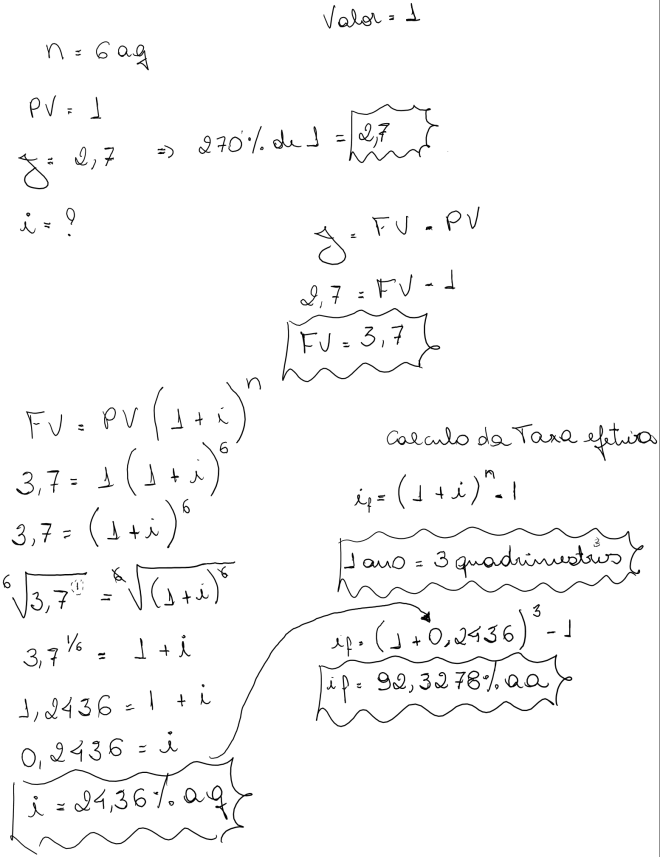 Valor = 1
n = 6 aq
PV = 1
J = 2,7 => 270% de 1 = 2,7
i = ?
J = FV - PV
2,7 = FV - 1
FV = 3,7
FV = PV (1 + i)^n
3,7 = 1 (1 + i)^6
3,7 = (1 + i)^6
⁶√3,7^(1) = ⁶√(1 + i)^6
3,7^1/6 = 1 + i
1,2436 = 1 + i
0,2436 = i
i = 24,36% aq
Calculo da Taxa efetiva
if = (1 + i)^n - 1
1 ano = 3 quadrimestris 3
if = (1 + 0,2436)^3 - 1
if = 92,3278% aa